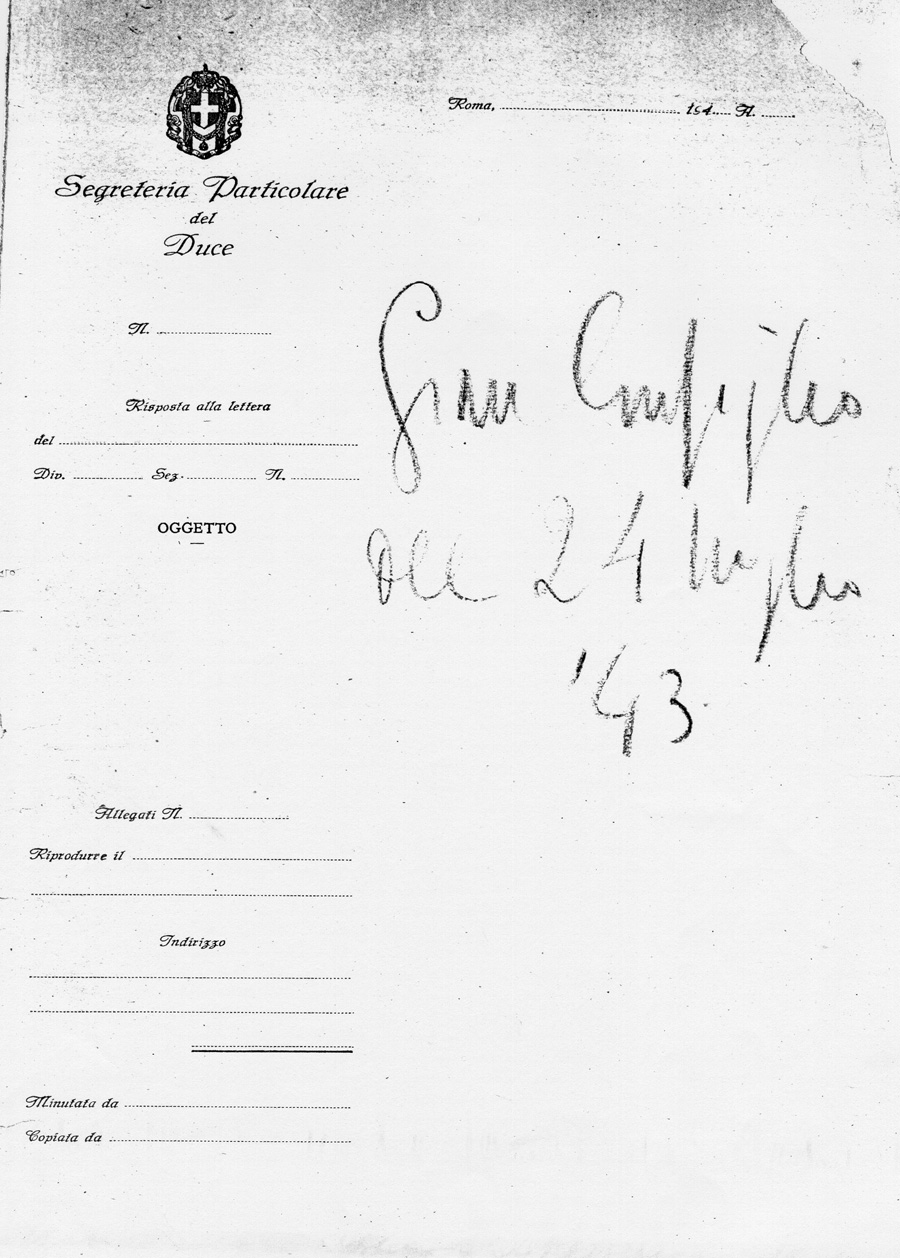 Roma, ........ 194..... A. ......
Segreteria Particolare
del
Duce
N. ........
Gran Consiglio
del 24 luglio
'43
Risposta alla lettera
del ........
Div. ........ Sez. ........ N. ........
OGGETTO
Allegati N. ........
Riprodurre il ........
Indirizzo
Minutata da ........
Copiata da ........